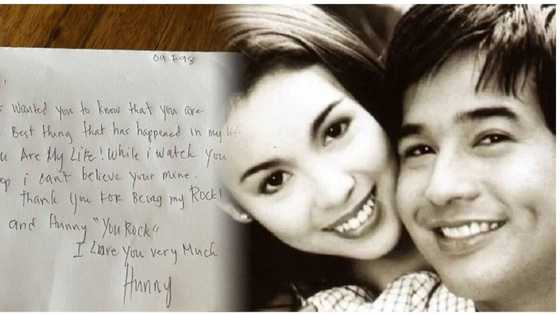 09-7-98
Wanted you to know that you are
Best thing that has happened in my life
u Are My Life! While i watch you
ep i can't believe your mine.
thank you for Being my Rock!
and Hunny "You Rock"
I Love you very Much
Hunny